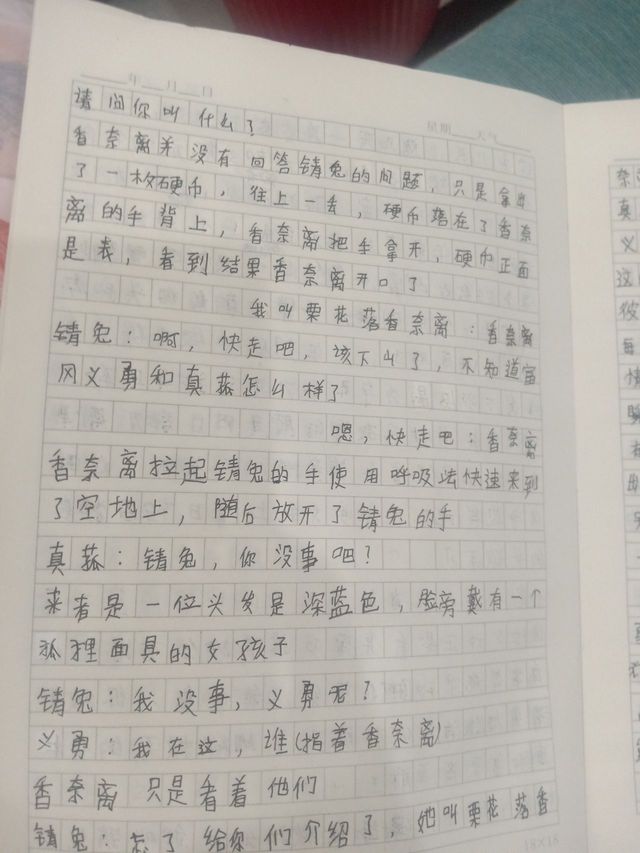 年 月 日
星期 天气
请问你叫什么了
香奈离并没有回答锖兔的问题，只是拿出
了一枚硬币，往上一丢，硬币落在了香奈
离的手背上，香奈离把手拿开，硬币正面
是表，看到结果香奈离开口了
我叫栗花落香奈离：香奈离
锖兔：啊，快走吧，该下山了，不知道富
冈义勇和真菰怎么样了
嗯，快走吧：香奈离
香奈离拉起锖兔的手使用呼吸法快速来到
了空地上，随后放开了锖兔的手
真菰：锖兔，你没事吧？
来者是一位头发是深蓝色，脸旁戴有一个
狐狸面具的女孩子
锖兔：我没事，义勇呢？
义勇：我在这，谁(指着香奈离)
香奈离只是看着他们
锖兔：忘了给你们介绍了，她叫栗花落香
18×18